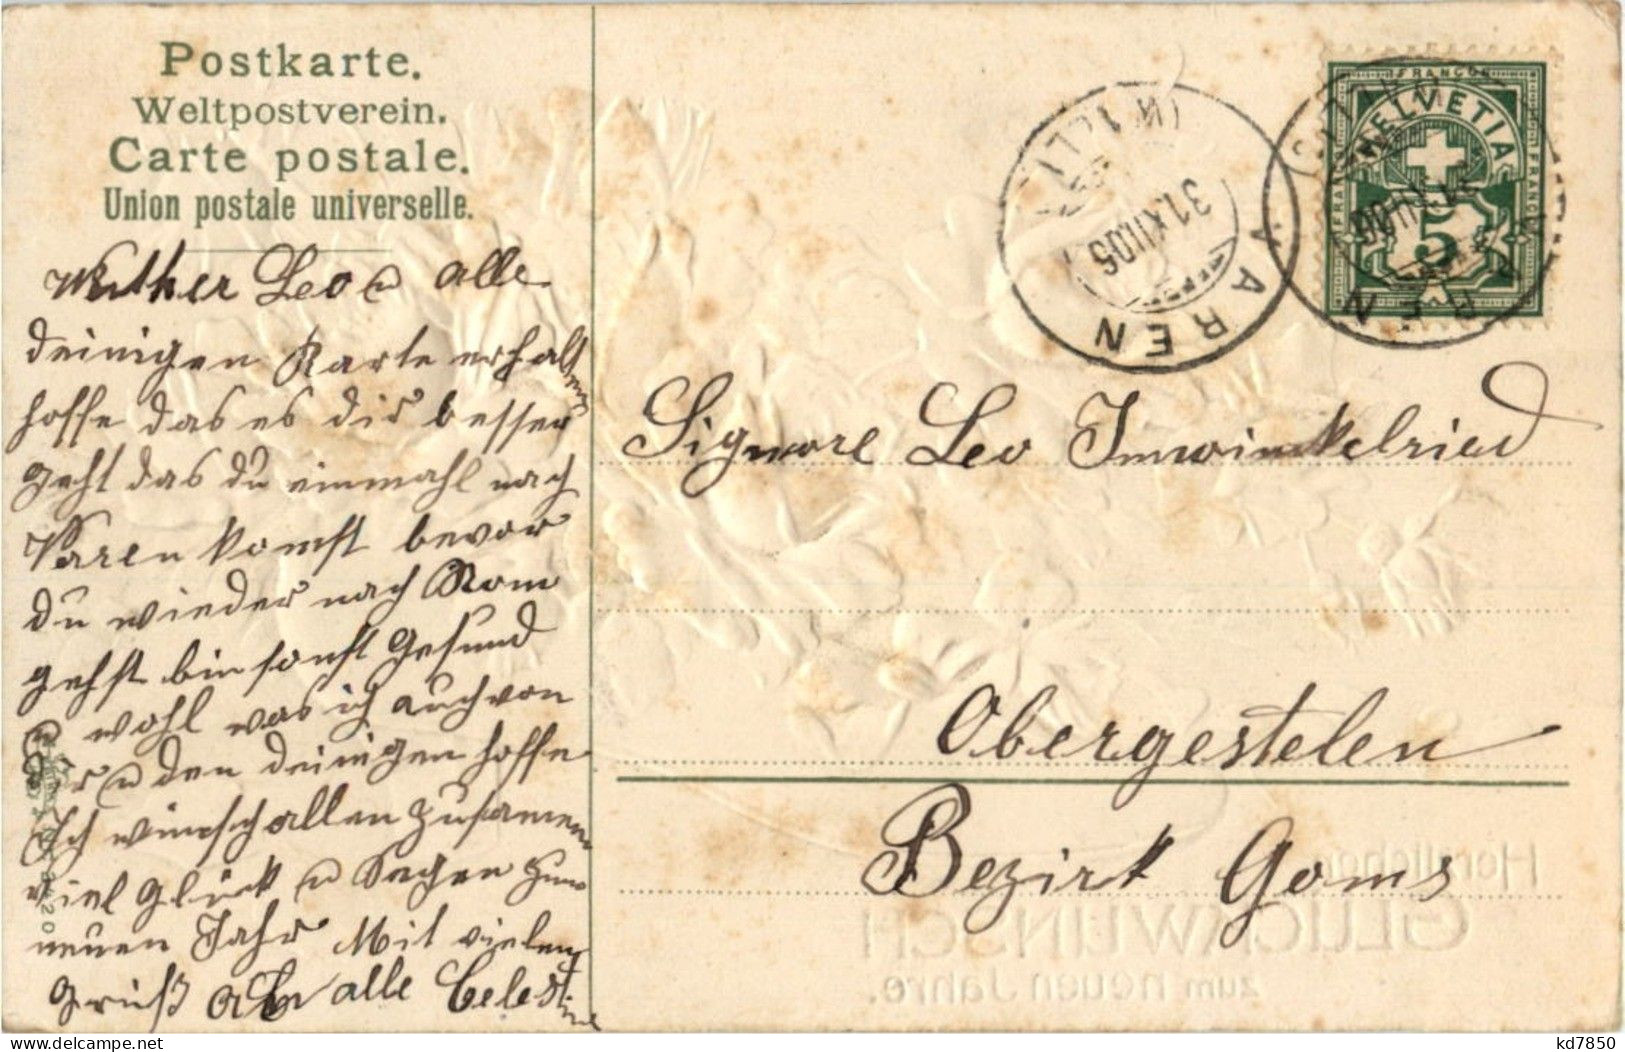 Postkarte.
Weltpostverein.
Carte postale.
Union postale universelle.
Leo u alle
deinigen Karte erhalten
hoffe das es dir besser
geht das du einmahl nach
Varen komst bevor
du wieder nach Rom
gehst bin sonst Gesund
u wohl was ich auch von
Dir u den deinigen hoffe
Ich winsch allen zusamen
viel Glück u Segen zum
neuen Jahr Mit vielen
Gruß an alle Celestine
VAREN
31.XII.05
VAREN
FRANCO
HELVETIA
5
Signore Leo Imwinkelried
Obergestelen
Bezirk Goms
Herzlichen
GLÜCKWUNSCH
zum neuen Jahre.
kd7850